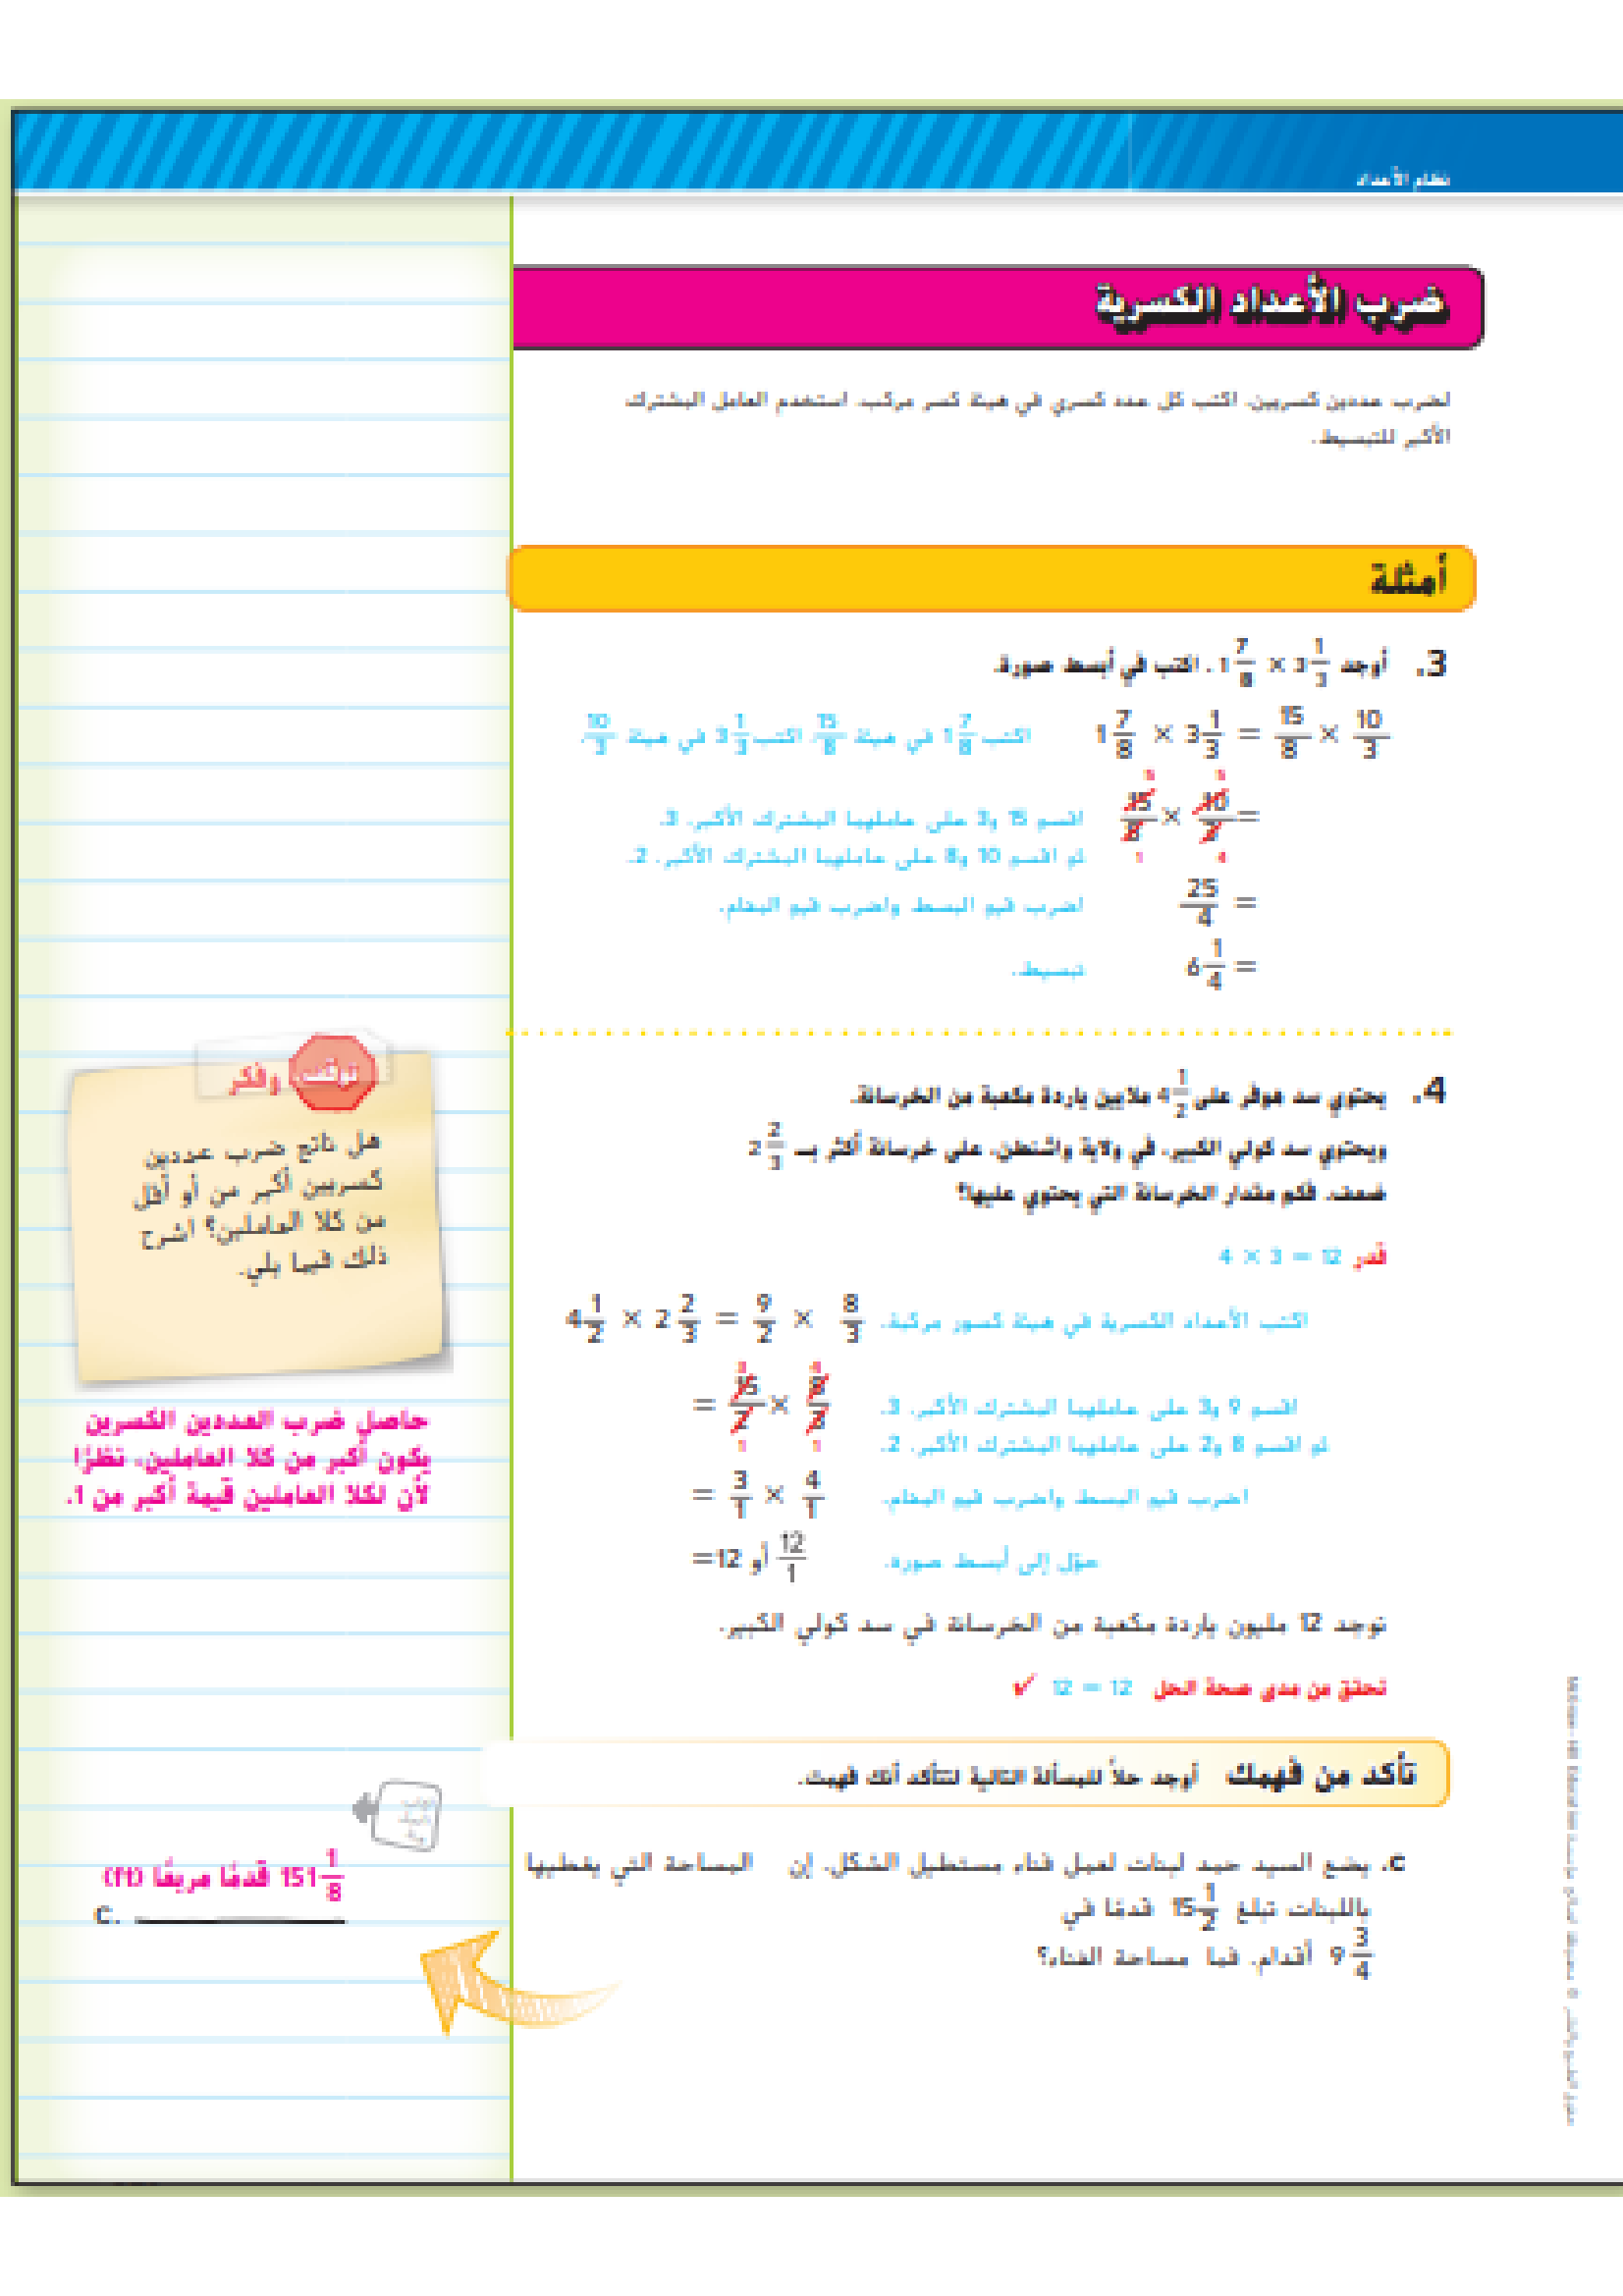 نظام الأعداد
ضرب الأعداد الكسرية
لضرب عددين كسريين، اكتب كل عدد كسري في هيئة كسر مركب. استخدم العامل المشترك
الأكبر للتبسيط.
أمثلة
3. أوجد 1 7/8 × 3 1/3. اكتب في أبسط صورة.
1 7/8 × 3 1/3 = 15/8 × 10/3 اكتب 1 7/8 في هيئة 15/8. اكتب 3 1/3 في هيئة 10/3.
= اقسم 15 و3 على عاملهما المشترك الأكبر، 3.
ثم اقسم 10 و8 على عاملهما المشترك الأكبر، 2.
= 25/4 اضرب قيم البسط واضرب قيم المقام.
= 6 1/4 تبسيط.
4. يحتوي سد هوفر على 4 1/2 ملايين ياردة مكعبة من الخرسانة.
ويحتوي سد كولي الكبير، في ولاية واشنطن، على خرسانة أكثر بـ 2 2/3
ضعف. فكم مقدار الخرسانة التي يحتوي عليها؟
قدر 4 × 3 = 12
4 1/2 × 2 2/3 = 9/2 × 8/3 اكتب الأعداد الكسرية في هيئة كسور مركبة.
= اقسم 9 و3 على عاملهما المشترك الأكبر، 3.
ثم اقسم 8 و2 على عاملهما المشترك الأكبر، 2.
= 3/1 × 4/1 اضرب قيم البسط واضرب قيم المقام.
= 12 أو 12/1 حوّل إلى أبسط صورة.
توجد 12 مليون ياردة مكعبة من الخرسانة في سد كولي الكبير.
تحقق من مدى صحة الحل 12 = 12 ✓
تأكد من فهمك أوجد حلاً للمسألة التالية لتتأكد أنك فهمت.
c. يضع السيد حميد لبنات لعمل فناء مستطيل الشكل. إن المساحة التي يغطيها
باللبنات تبلغ 15 1/2 قدمًا في
9 3/4 أقدام. فما مساحة الفناء؟
توقف وفكر
هل ناتج ضرب عددين
كسريين أكبر من أو أقل
من كلا العاملين؟ اشرح
ذلك فيما يلي.
حاصل ضرب العددين الكسرين
يكون أكبر من كلا العاملين، نظرًا
لأن لكلا العاملين قيمة أكبر من 1.
151 1/8 قدمًا مربعًا (ft)
c.